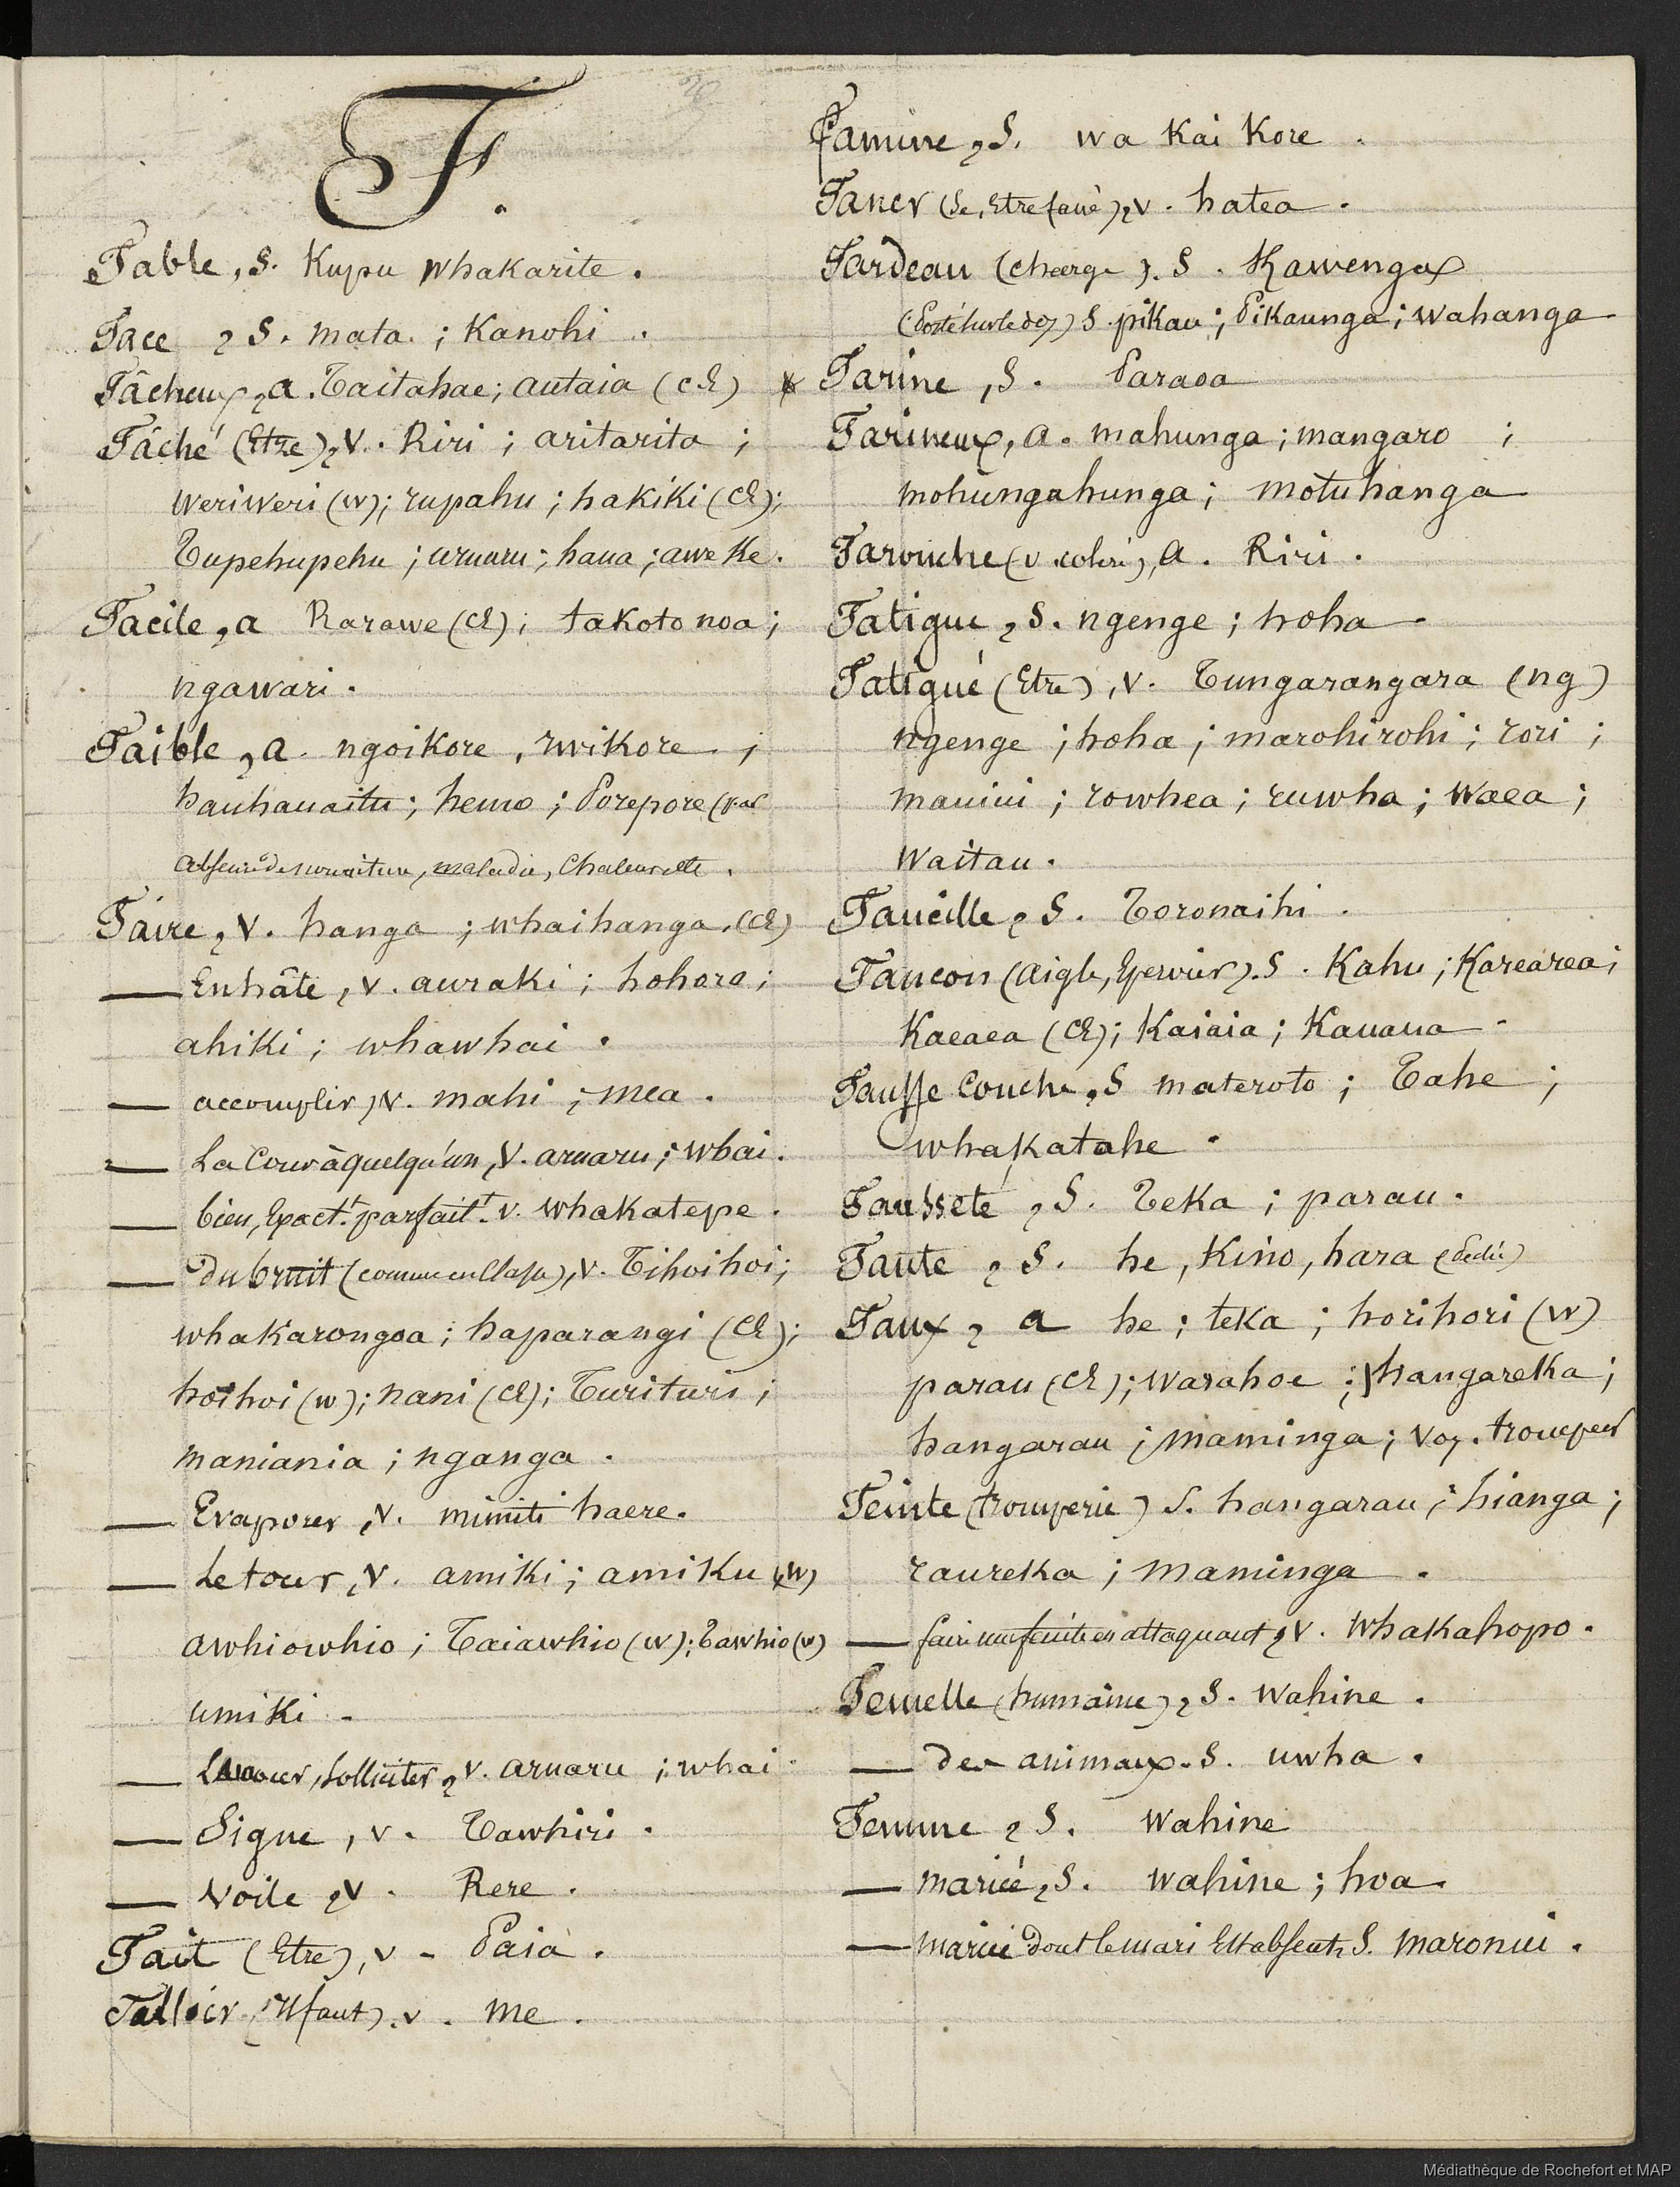 F.
Fable, s. Kupu whakarite.
Face, s. mata.; Kanohi.
Fâcheux, a. Taitahae; autaia (cE)
Fâché (Etre), v. Riri; aritarita;
weriweri (w); rupahu; hakiki (cE);
Tupehupehu; uruaru; haua; aweke.
Facile, a Rarawe (cE); takoto noa;
ngawari.
Faible, a. ngoikore, rwikore;
hauhauaitu; hemo; Porepore (par
absence de nourriture, maladie, Chaleur etc.
Faire, v. hanga; whaihanga. (cE)
— En hâte, v. auraki; hohoro;
ahiki; whawhai.
— accomplir, v. mahi; mea.
— La Cour à quelqu'un, v. aruaru; whai.
— bien, Exactt. parfaitt. v. whakatepe.
— Du bruit (comme en Classe), v. Tihoihoi;
whakarongoa; haparangi (cE);
hoihoi (w); nani (cE); Turituri;
maniania; nganga.
— Evaporer, v. mimiti haere.
— Le tour, v. amiki; amiku (w)
awhiowhio; Taiawhio (w); Tawhio (w)
umiki.
— L'Amour, Solliciter, v. aruaru; whai
— Signe, v. Tawhiri.
— Voile, v. Rere.
Fait (Etre), v. Paia.
Falloir (Il faut). v. me.
Famine, s. wa Kai Kore.
Faner (Se, Etre fané), v. hatea.
Fardeau (charge). s. Kawenga
(Porté sur le dos) s. pikau; Pikaunga; wahanga
Farine, s. Paraoa
Farineux, a. mahunga; mangaro;
mohungahunga; motuhanga
Farouche (v. colère), a. Riri.
Fatigue, s. ngenge; hoha
Fatigué (Etre), v. Tungarangara (ng)
ngenge; hoha; marohirohi; rori;
mauiui; rowhea; ruwha; waea;
waitau.
Faucille, s. Toronaihi.
Faucon (Aigle, Epervier). s. Kahu; Karearea;
Kaeaea (cE); Kaiaia; Kauaua
Fausse Couche, s materoto; Tahe;
whakatahe.
Fausseté, s. Teka; parau.
Faute, s. he, Kino, hara (Péché)
Faux, a he; teka; horihori (w)
parau (cE); warahoe; hangareka;
hangarau; maminga; Voy. trompeur
Feinte (tromperie) s. hangarau; hianga;
raureka; maminga.
— faire une feinte en attaquant, v. whakahopo.
Femelle (humaine), s. wahine.
— des animaux. s. uwha.
Femme, s. wahine
— mariée, s. wahine; hoa
— mariée dont le mari Est absent, s. maronui.
Médiathèque de Rochefort et MAP